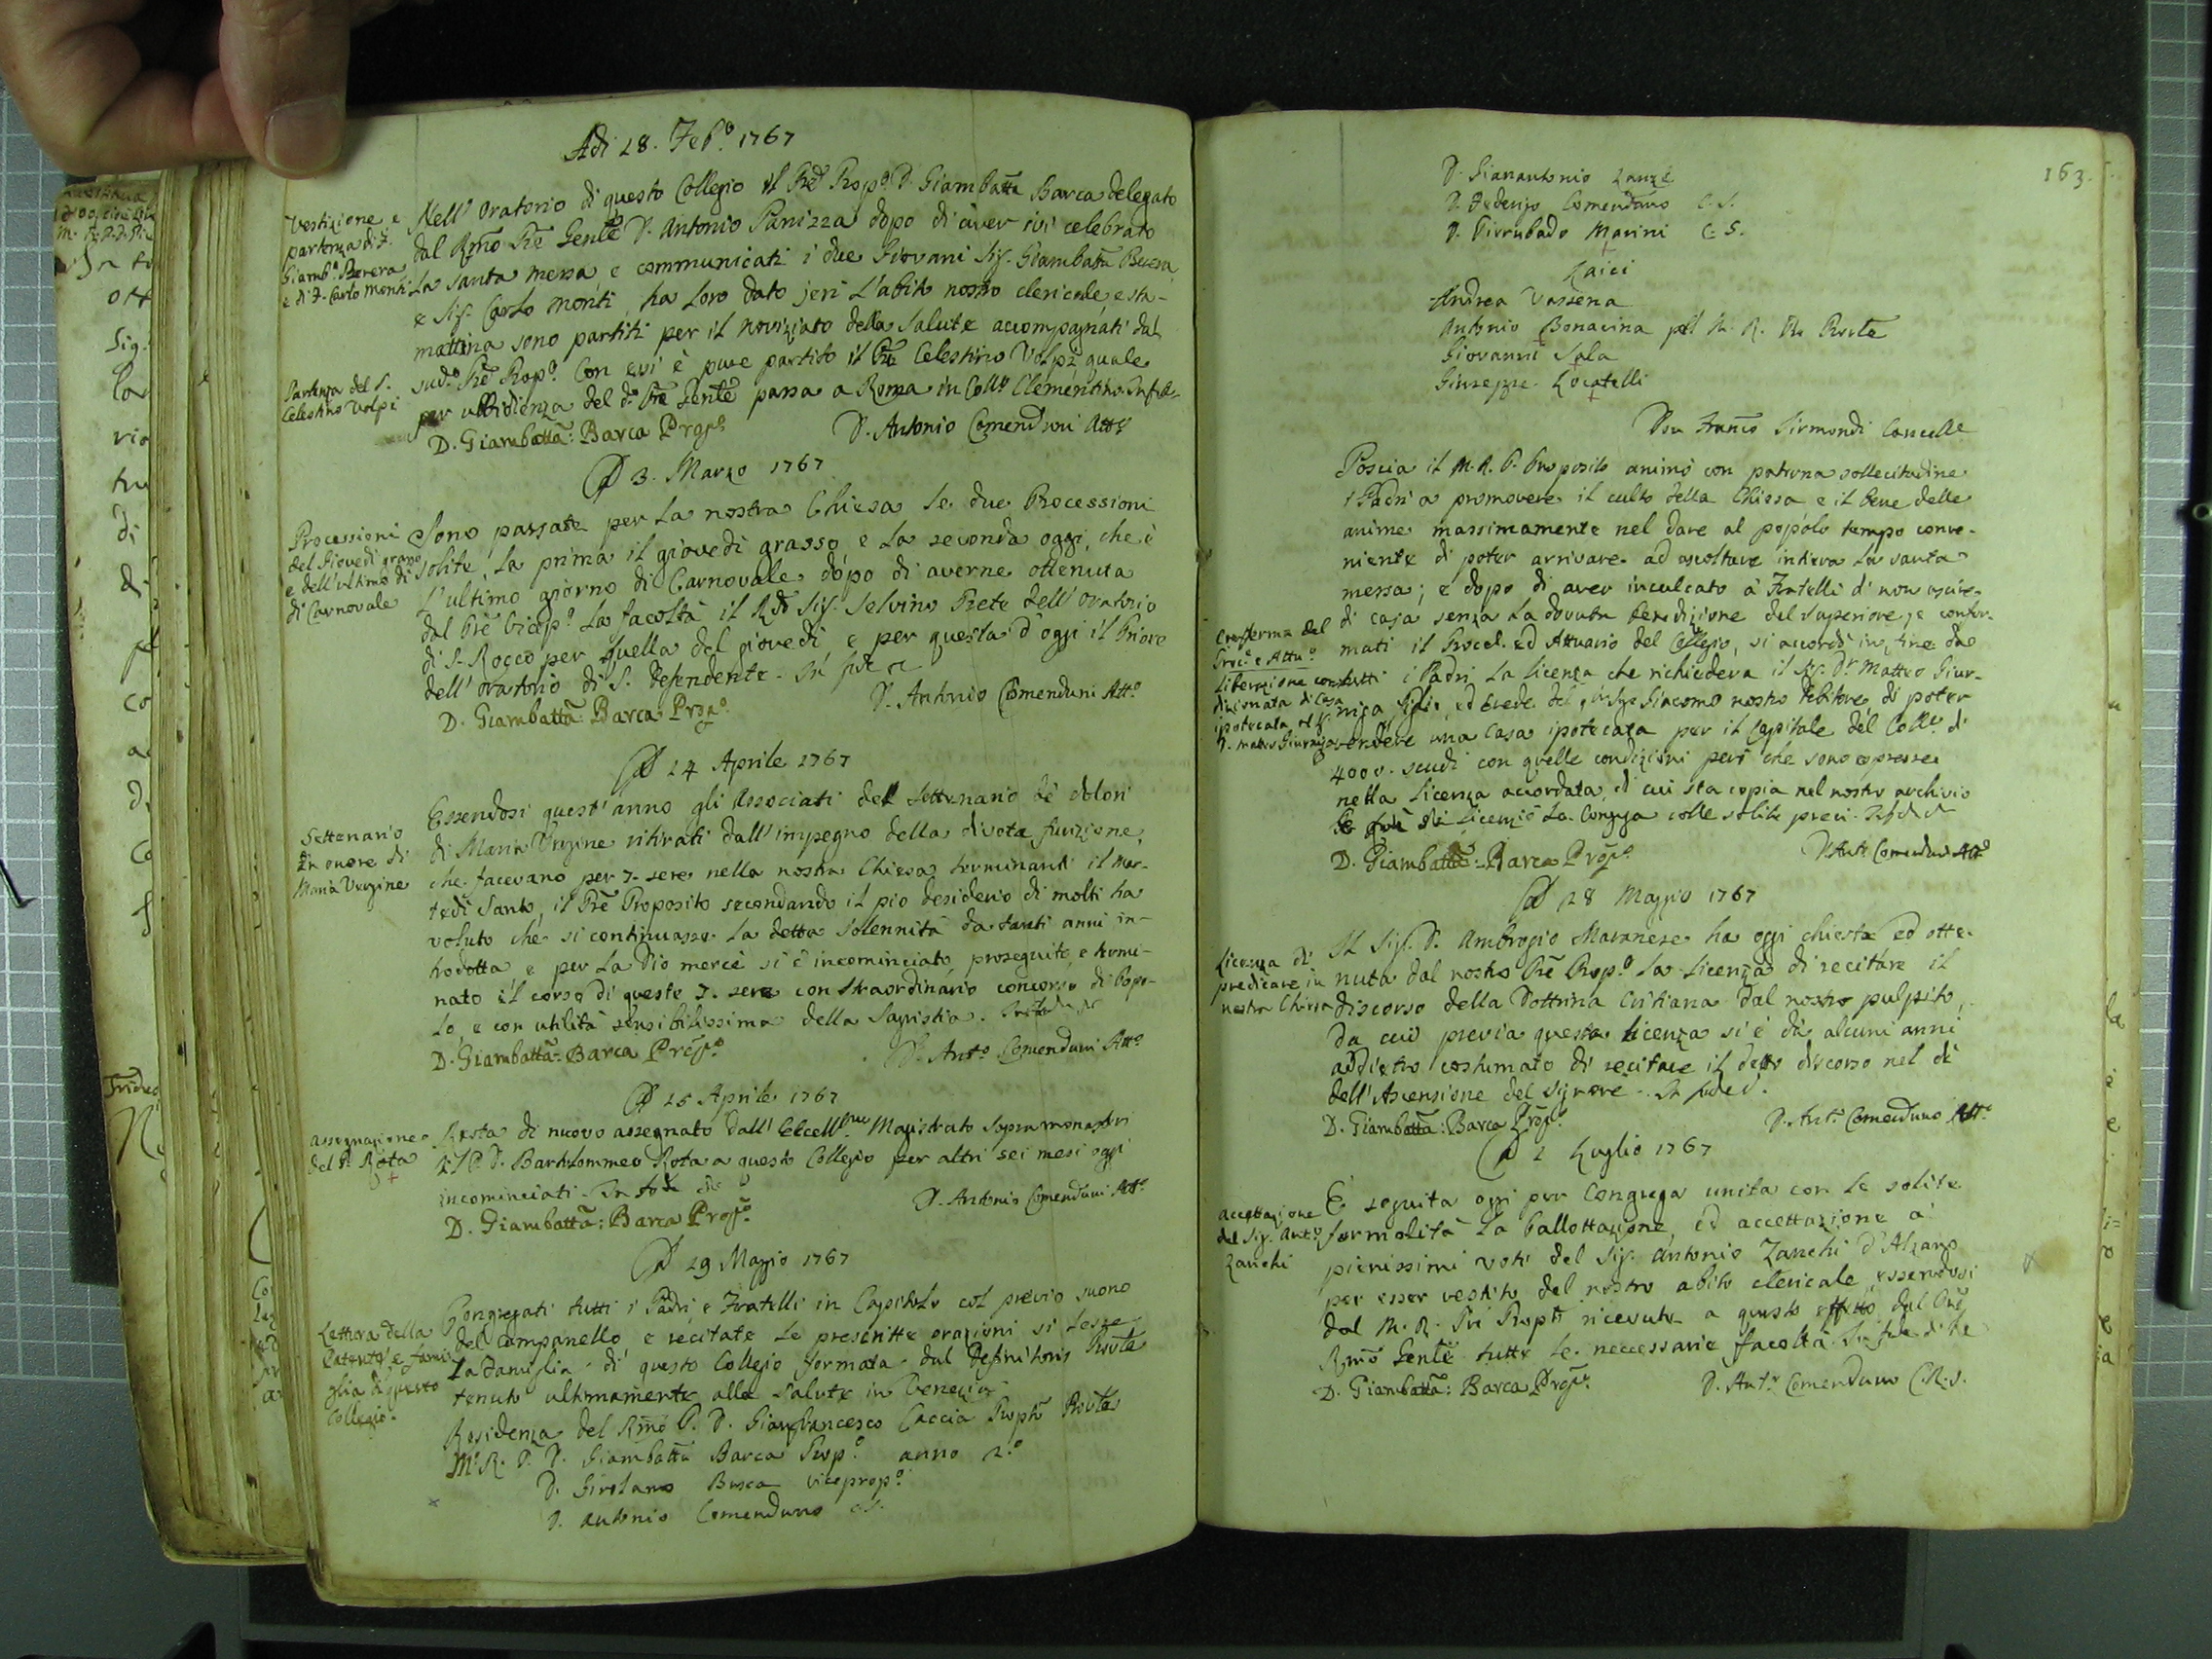 Adi 28. Feb.º 1767
Vestizione e
partenza di F.
Giamb.ª Bevera
e di F. Carlo Monti
Nell' Oratorio di questo Collegio il Prē Prop.º D. Giambattā Barca delegato
dal Rmō Prē Genle D. Antonio Panizza dopo di aver ivi celebrato
La Santa messa e communicati i due Giovani Sig. Giambattā
e Sig. Carlo Monti, ha loro dato jeri L'abito nostro clericale, e sta-
mattina sono partiti per il Noviziato della Salute accompagnati dal
Partenza del P.
Celestino Volpi
sud.º Prē Prop.º Con essi è pure partito il Prē Celestino Volpi quale
per ubbidienza del d.º Prē Genle passa a Roma in Coll.º Clementino. In fede
D. Giambattā: Barca Prop.º D. Antonio Comenduni Att.º
A 3. Marzo 1767
Processioni
del Giovedì grasso
e dell'ultimo di
di Carnovale
Sono passate per la nostra Chiesa le due Processioni
solite, La prima il giovedì grasso, e la seconda oggi, che è
L'ultimo giorno di Carnovale, dopo di averne ottenuta
dal Prē Vicep.º La facoltà il Rdō Sig. Selvino Prete dell'oratorio
di S. Rocco per quella del giovedì, e per questa d'oggi il Priore
dell'oratorio di S. Defendente. In fede
D. Giambattā: Barca Prop.º D. Antonio Comenduni Att.º
A 14 Aprile 1767
Settenario
in onore di
Maria Vergine
Essendosi quest'anno gli Associati del Settenario de' dolori
di Maria Vergine ritirati dall'impegno della divota funzione,
che facevano per 7. sere nella nostra Chiesa terminanti il Mar-
tedì Santo, il Prē Proposito secondando il pio desiderio di molti ha
voluto che si continuasse la detta Solennità da tanti anni in-
trodotta, e per la Dio mercè si è incominciato, proseguito, e termi-
nato il corso di queste 7. sere con straordinario concorso di Popo-
lo, e con utilità sensibilissima della Sagristia.
D. Giambattā: Barca Prop.º D. Ant.º Comenduni Att.º
A 25 Aprile 1767
Assegnazione
del P. Rota
Resta di nuovo assegnato dall'Eccell.mo Magistrato Sopra monasteri
il P. D. Bartolommeo Rota a questo Collegio per altri sei mesi oggi
incominciati. In fede
D. Giambattā: Barca Prop.º D. Antonio Comenduni Att.º
A 19 Maggio 1767
Lettura della
Patente, e fami-
glia di questo
Collegio.
Congregati tutti i Padri, e Fratelli in Capitolo col previo suono
del Campanello e recitate le prescritte orazioni si lesse
la Famiglia di questo Collegio formata dal Definitorio
tenuto ultimamente alla Salute in Venezia
Residenza del Rmō P. D. Gianfrancesco Caccia
M. R. P. D. Giambattā Barca Prop.º anno 2.º
D. Girolamo Busca viceprop.º
D. Antonio Comenduno
163.
D. Gianantonio
D. Federigo Comenduno C. S.
D. Marini C. S.
Laici
Andrea Vassena
Antonio Bonacina
Giovanni Sala
Giuseppe Locatelli
Don Sirmondi Cancelle
Poscia il M. R. P. Proposito animò con paterna sollecitudine
i Padri a promovere il culto della Chiesa e il bene delle
anime massimamente nel dare al popolo tempo conve-
niente di poter arrivare ad ascoltare intiera la santa
messa; e dopo di aver inculcato a' Fratelli di non uscire
di casa senza la dovuta benedizione del Superiore, e confer-
Conferma del
Proc.e e Attu.º
mati il Procel. ed Attuario del Collegio, si accordò in fine da
Liberazione con-
dizionata di Casa
ipotecata al
D. Matteo Giuraniga
tutti i Padri la licenza che richiedeva il Sig. Dr. Matteo Giur-
niga figlio, ed erede del Sig. Giacomo nostro debitore, di poter
vendere una casa ipotecata per il Capitale del Coll.º di
4000. scudi con quelle condizioni però che sono espresse
nella licenza accordata, di cui sta copia nel nostro archivio
si licenziò la Congrega colle solite preci.
D. Giambattā: Barca Prop.º D. Ant. Comenduno Att.º
A 28 Maggio 1767
Licenza di
predicare in
nostra Chiesa
Il Sig. D. Ambrogio Maranese ha oggi chiesta ed otte-
nuta dal nostro Prē Prop.º la licenza di recitare il
discorso della Dottrina Cristiana dal nostro pulpito,
da cui previa questa licenza si è da alcuni anni
addietro costumato di recitare il detto discorso nel dì
dell'Ascensione del Signore. In fede
D. Giambattā: Barca Prop.º D. Ant.º Comenduno Att.º
A 2 Luglio 1767
Accettazione
del Sig. Ant.º
Zanchi
È seguita oggi per Congrega unita con le solite
formolità la ballottazione, ed accettazione a'
pienissimi voti del Sig. Antonio Zanchi d'Alzano
per esser vestito del nostro abito clericale, essendosi
dal M. R. Prē Prop.º ricevute a questo effetto dal
Rmō Genle tutte le neccessarie facoltà. In fede
D. Giambattā: Barca Prop.º D. Ant.º Comenduno C.R.S.